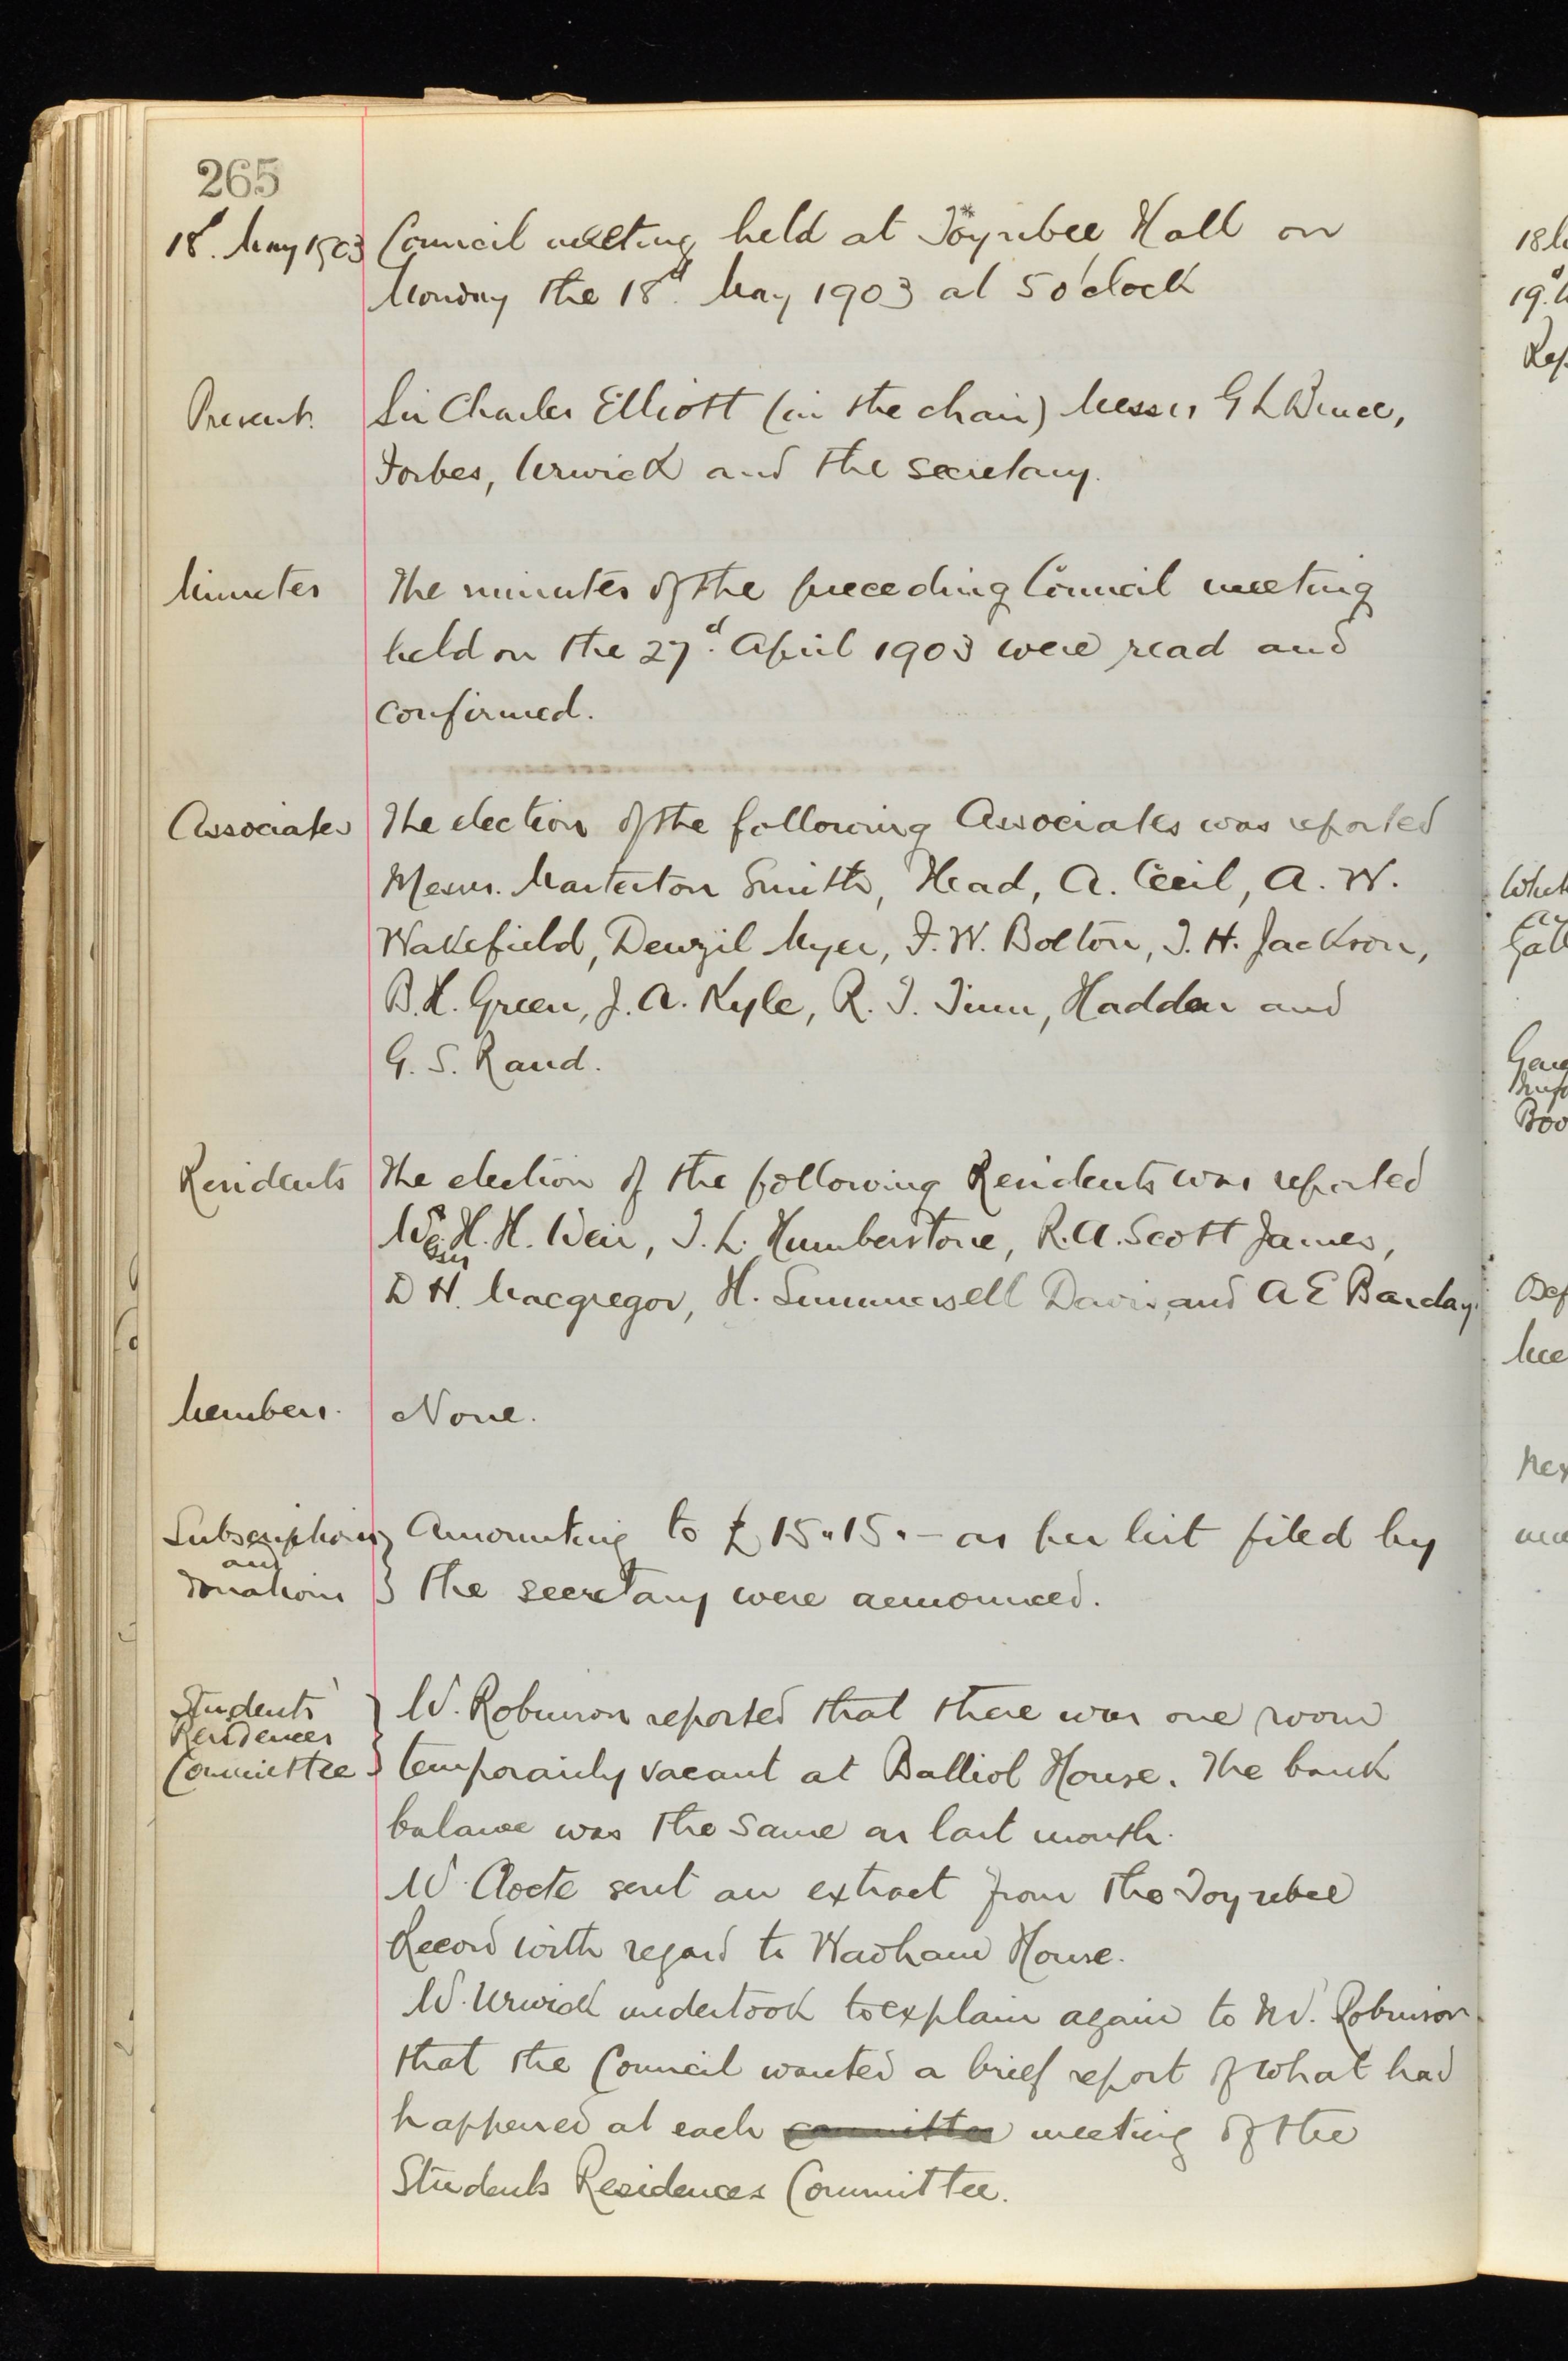 265
18th. May 1903
Council meeting held at Toynbee Hall on
Monday the 18th. May 1903 at 5 o'clock
Present.
Sir Charles Elliott (in the chair) Messrs G L Bruce,
Forbes, Urwick and the secretary.
Minutes
The minutes of the preceding Council meeting
held on the 27th. April 1903 were read and
confirmed.
Associates
The election of the following Associates was reported
Messrs. Masterton Smith, Head, A. Cecil, A. W.
Wakefield, Denzil Myer, F. W. Bolton, T. H. Jackson,
B. H. Green, J. A. Kyle, R. T. Tunn, Haddon and
G. S. Rand.
Residents
The election of the following Residents was reported
Messrs H. H. Weir, T. L. Humberstone, R. A. Scott James,
D H. Macgregor, H. Summerwell Davis, and A E Barclay.
Members.
None.
Subscriptions
and
Donations
Amounting to £15.15.- as per list filed by
the secretary were announced.
Students'
Residences
Committee
Mr. Robinson reported that there was one room
temporarily vacant at Balliol House. The bank
balance was the same as last month.
Mr. Cloete sent an extract from the Toynbee
Record with regard to Wadham House.
Mr. Urwick undertook to explain again to Mr. Robinson
that the Council wanted a brief report of what had
happened at each committee meeting of the
Students Residences Committee.